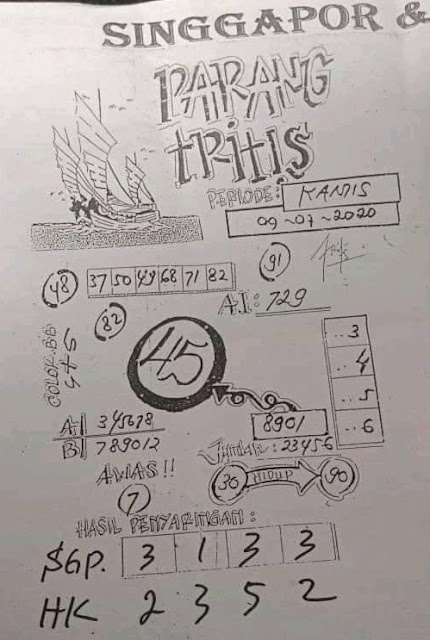 SINGGAPOR &
PARANG
TRITIS
PERIODE: KAMIS
09-07-2020
48 37 50 49 68 71 82 91
AI: 729
82
COLOK.BB
45
3
4
5
6
A 345678
B 789012
8901
23456
AWAS!!
30 HIDUP 90
7
HASIL PENYARINGAN:
SGP. 3 1 3 3
HK 2 3 5 2